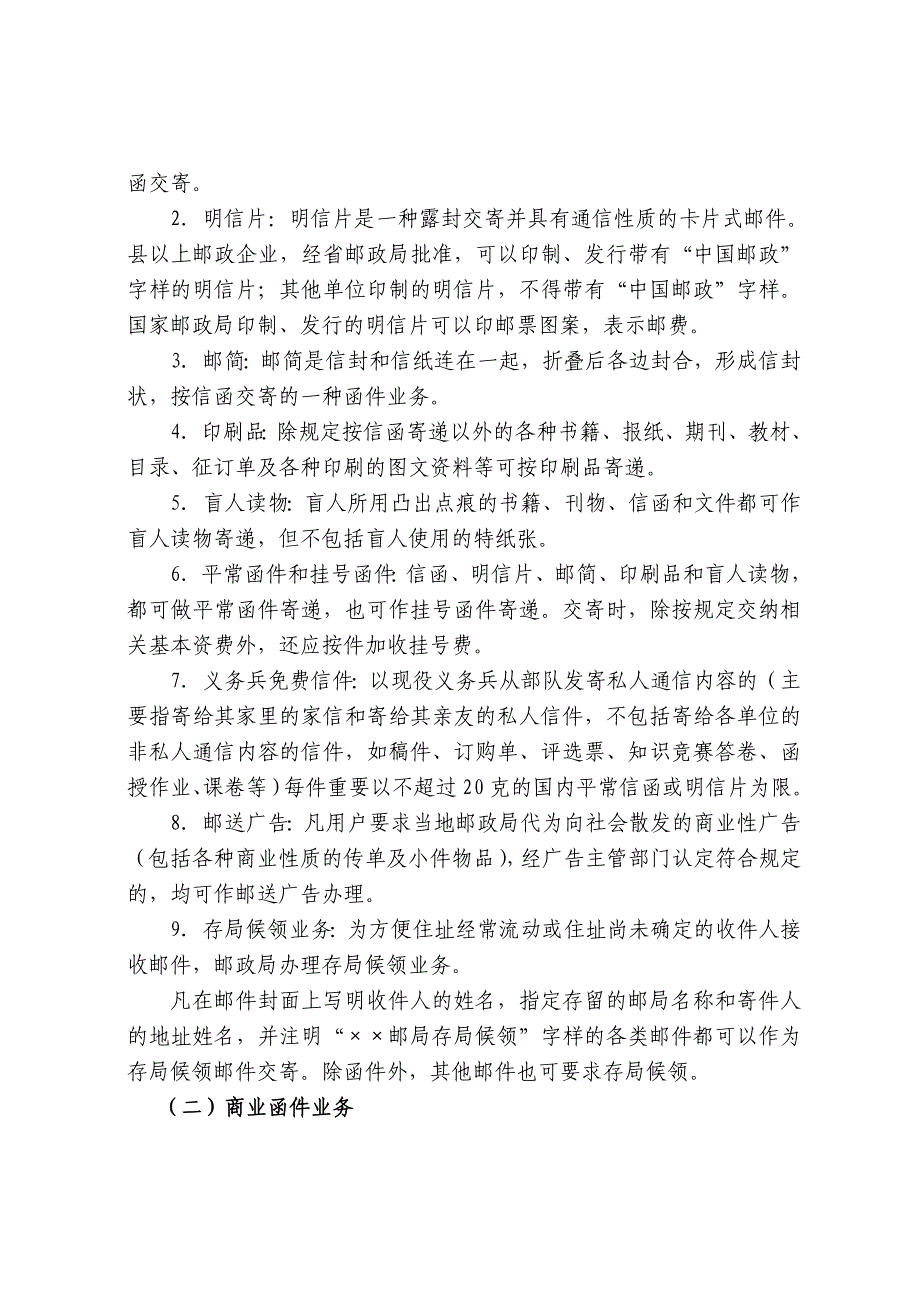 函交寄。
2．明信片：明信片是一种露封交寄并具有通信性质的卡片式邮件。
县以上邮政企业，经省邮政局批准，可以印制、发行带有“中国邮政”
字样的明信片；其他单位印制的明信片，不得带有“中国邮政”字样。
国家邮政局印制、发行的明信片可以印邮票图案，表示邮费。
3．邮简：邮简是信封和信纸连在一起，折叠后各边封合，形成信封
状，按信函交寄的一种函件业务。
4．印刷品：除规定按信函寄递以外的各种书籍、报纸、期刊、教材、
目录、征订单及各种印刷的图文资料等可按印刷品寄递。
5．盲人读物：盲人所用凸出点痕的书籍、刊物、信函和文件都可作
盲人读物寄递，但不包括盲人使用的特纸张。
6．平常函件和挂号函件：信函、明信片、邮简、印刷品和盲人读物，
都可做平常函件寄递，也可作挂号函件寄递。交寄时，除按规定交纳相
关基本资费外，还应按件加收挂号费。
7．义务兵免费信件：以现役义务兵从部队发寄私人通信内容的（主
要指寄给其家里的家信和寄给其亲友的私人信件，不包括寄给各单位的
非私人通信内容的信件，如稿件、订购单、评选票、知识竞赛答卷、函
授作业、课卷等）每件重要以不超过20克的国内平常信函或明信片为限。
8．邮送广告：凡用户要求当地邮政局代为向社会散发的商业性广告
（包括各种商业性质的传单及小件物品），经广告主管部门认定符合规定
的，均可作邮送广告办理。
9．存局候领业务：为方便住址经常流动或住址尚未确定的收件人接
收邮件，邮政局办理存局候领业务。
凡在邮件封面上写明收件人的姓名，指定存留的邮局名称和寄件人
的地址姓名，并注明“××邮局存局候领”字样的各类邮件都可以作为
存局候领邮件交寄。除函件外，其他邮件也可要求存局候领。
（二）商业函件业务